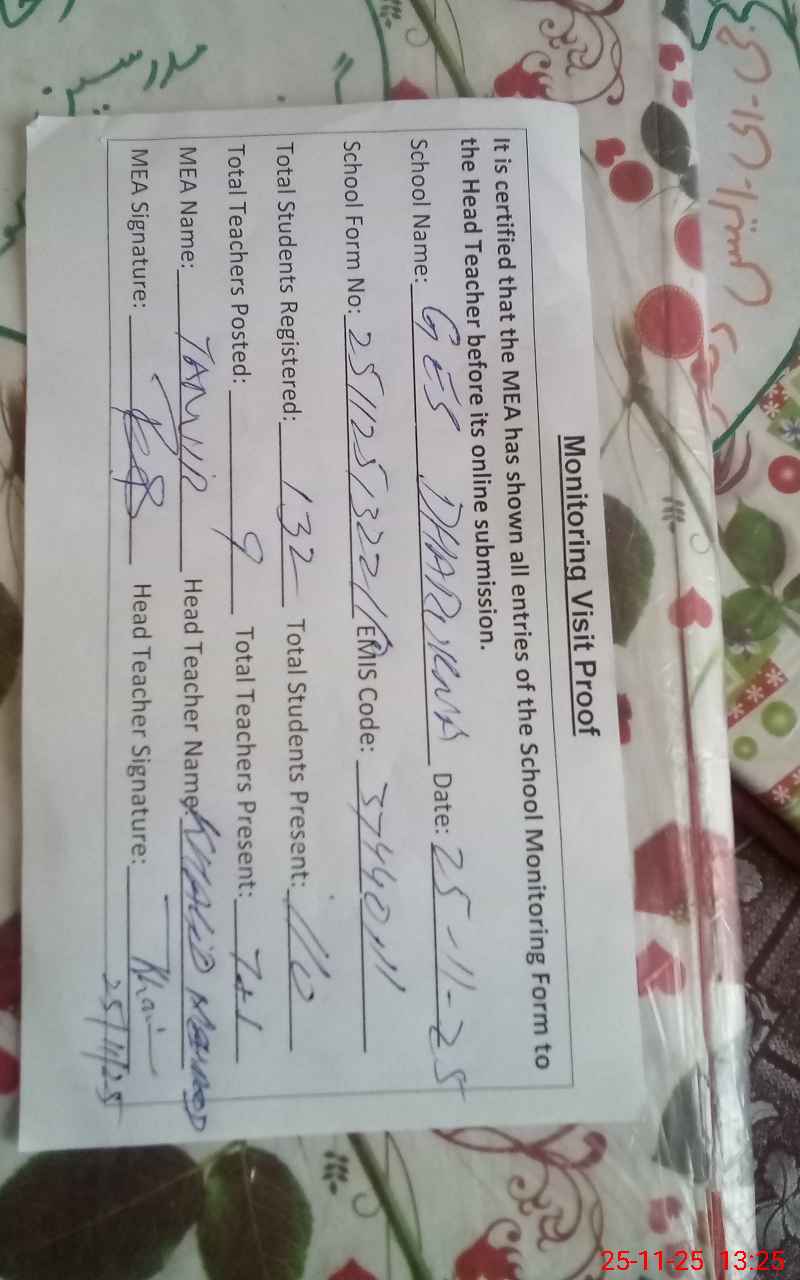 Monitoring Visit Proof
It is certified that the MEA has shown all entries of the School Monitoring Form to
the Head Teacher before its online submission.
School Name: GES Date: 25-11-25
School Form No: EMIS Code:
Total Students Registered: 132 Total Students Present: 110
Total Teachers Posted: 9 Total Teachers Present: 7+1
MEA Name: TANVIR Head Teacher Name: KHALID MAHMOOD
MEA Signature: Head Teacher Signature:
25/11/25
25-11-25 13:25